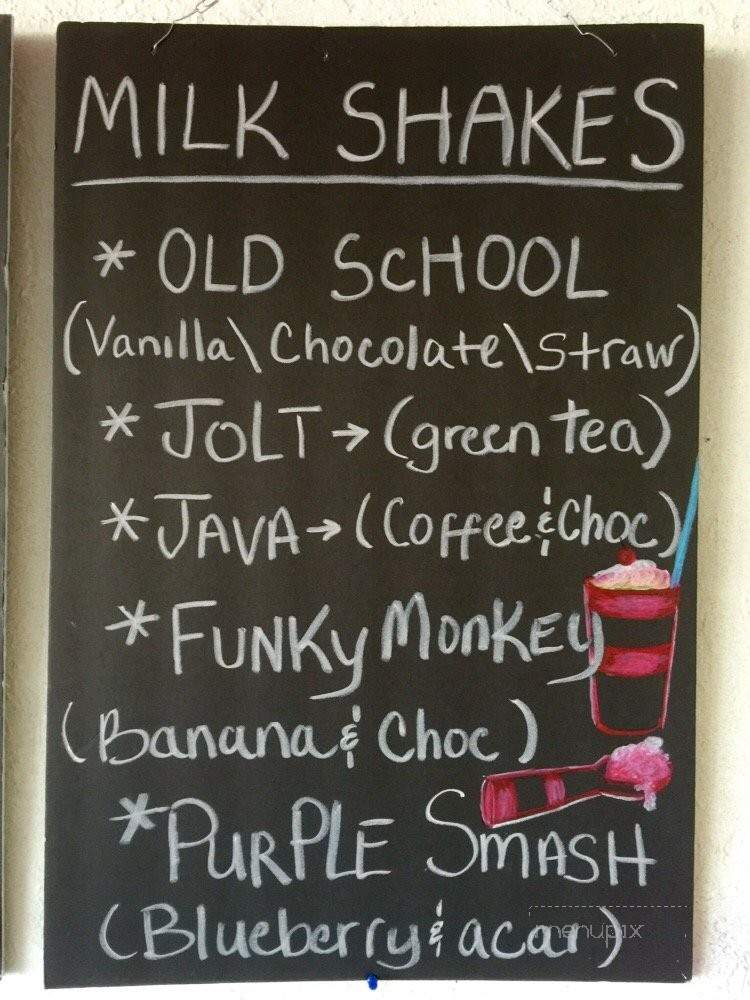 MILK SHAKES
* OLD SCHOOL
(Vanilla\Chocolate\Straw)
* JOLT → (green tea)
* JAVA → (Coffee & Choc)
* FUNKY MONKEY
(Banana & Choc)
* PURPLE SMASH
(Blueberry & acai)
menupix